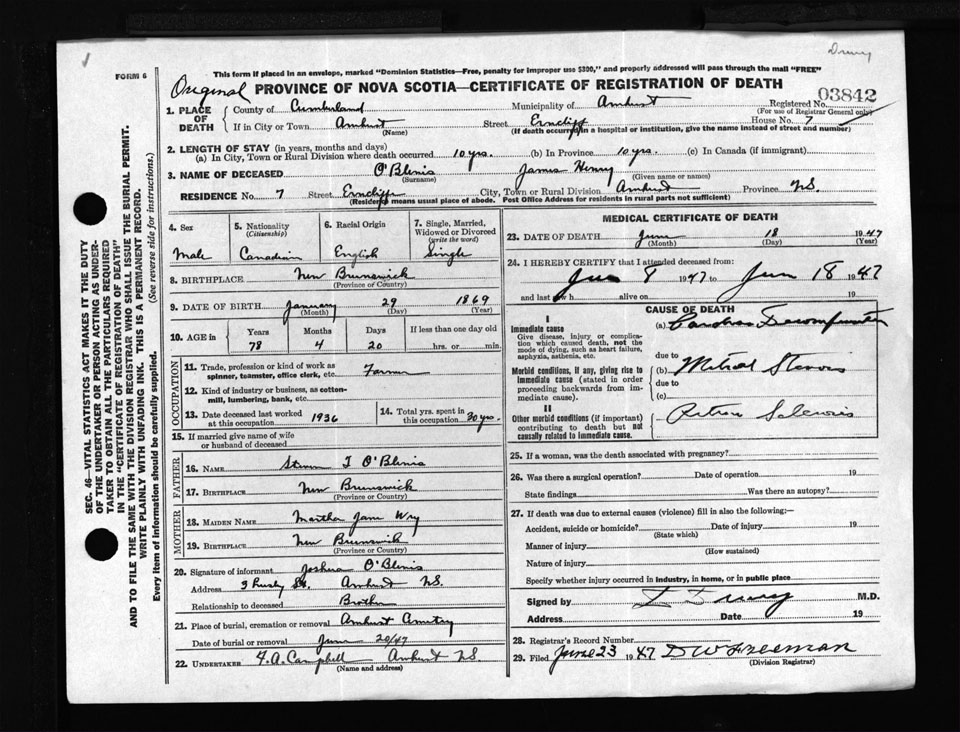 Drury
FORM 6
This form if placed in an envelope, marked "Dominion Statistics—Free, penalty for improper use $300," and properly addressed will pass through the mail "FREE"
Original PROVINCE OF NOVA SCOTIA—CERTIFICATE OF REGISTRATION OF DEATH
03842
1. PLACE OF DEATH
County of Cumberland Municipality of Amherst Registered No.
(For use of Registrar General only)
If in City or Town Amherst Street Erncliff House No. 7
(Name) (If death occurred in a hospital or institution, give the name instead of street and number)
2. LENGTH OF STAY (in years, months and days)
(a) In City, Town or Rural Division where death occurred 10 yrs. (b) In Province 10 yrs. (c) In Canada (if immigrant)
3. NAME OF DECEASED O'Blenis James Henry
(Surname) (Given name or names)
RESIDENCE No. 7 Street Erncliffe City, Town or Rural Division Amherst Province N.S.
(Residence means usual place of abode. Post Office Address for residents in rural parts not sufficient)
SEC. 46—VITAL STATISTICS ACT MAKES IT THE DUTY
OF THE UNDERTAKER OR PERSON ACTING AS UNDER-
TAKER TO OBTAIN ALL THE PARTICULARS REQUIRED
IN THE "CERTIFICATE OF REGISTRATION OF DEATH"
AND TO FILE THE SAME WITH THE DIVISION REGISTRAR WHO SHALL ISSUE THE BURIAL PERMIT.
WRITE PLAINLY WITH UNFADING INK. THIS IS A PERMANENT RECORD.
Every item of information should be carefully supplied. (See reverse side for instructions.)
4. Sex 5. Nationality (Citizenship) 6. Racial Origin 7. Single, Married, Widowed or Divorced (write the word)
Male Canadian English Single
8. BIRTHPLACE New Brunswick
(Province of Country)
9. DATE OF BIRTH January 29 1869
(Month) (Day) (Year)
10. AGE in Years Months Days If less than one day old
78 4 20 hrs. or min.
OCCUPATION
11. Trade, profession or kind of work as spinner, teamster, office clerk, etc. Farmer
12. Kind of industry or business, as cotton-mill, lumbering, bank, etc.
13. Date deceased last worked at this occupation 1936 14. Total yrs. spent in this occupation 30 yrs.
15. If married give name of wife or husband of deceased
FATHER
16. NAME T O'Blenis
17. BIRTHPLACE New Brunswick
(Province or Country)
MOTHER
18. MAIDEN NAME Martha Jane Wry
19. BIRTHPLACE New Brunswick
(Province or Country)
20. Signature of informant Joshua O'Blenis
Address 3 St. Amherst N.S.
Relationship to deceased Brother
21. Place of burial, cremation or removal Amherst Cemetery
Date of burial or removal June 20/47
22. UNDERTAKER F. A. Campbell Amherst N.S.
(Name and address)
MEDICAL CERTIFICATE OF DEATH
23. DATE OF DEATH June 18 1947
(Month) (Day) (Year)
24. I HEREBY CERTIFY that I attended deceased from:
Jun 8 1947 to Jun 18 1947
and last saw h alive on 19
CAUSE OF DEATH
I
Immediate cause
Give disease, injury or complication which caused death, not the mode of dying, such as heart failure, asphyxia, asthenia, etc.
(a) Cardiac Decompensation
due to
Morbid conditions, if any, giving rise to immediate cause (stated in order proceeding backwards from immediate cause).
(b) Mitral Stenosis
due to
(c)
II
Other morbid conditions (if important) contributing to death but not causally related to immediate cause.
25. If a woman, was the death associated with pregnancy?
26. Was there a surgical operation? Date of operation 19
State findings Was there an autopsy?
27. If death was due to external causes (violence) fill in also the following:—
Accident, suicide or homicide? Date of injury 19
(State which)
Manner of injury
(How sustained)
Nature of injury
Specify whether injury occurred in industry, in home, or in public place
Signed by Drury M.D.
Address Date 19
28. Registrar's Record Number
29. Filed June 23 1947 D W Freeman
(Division Registrar)